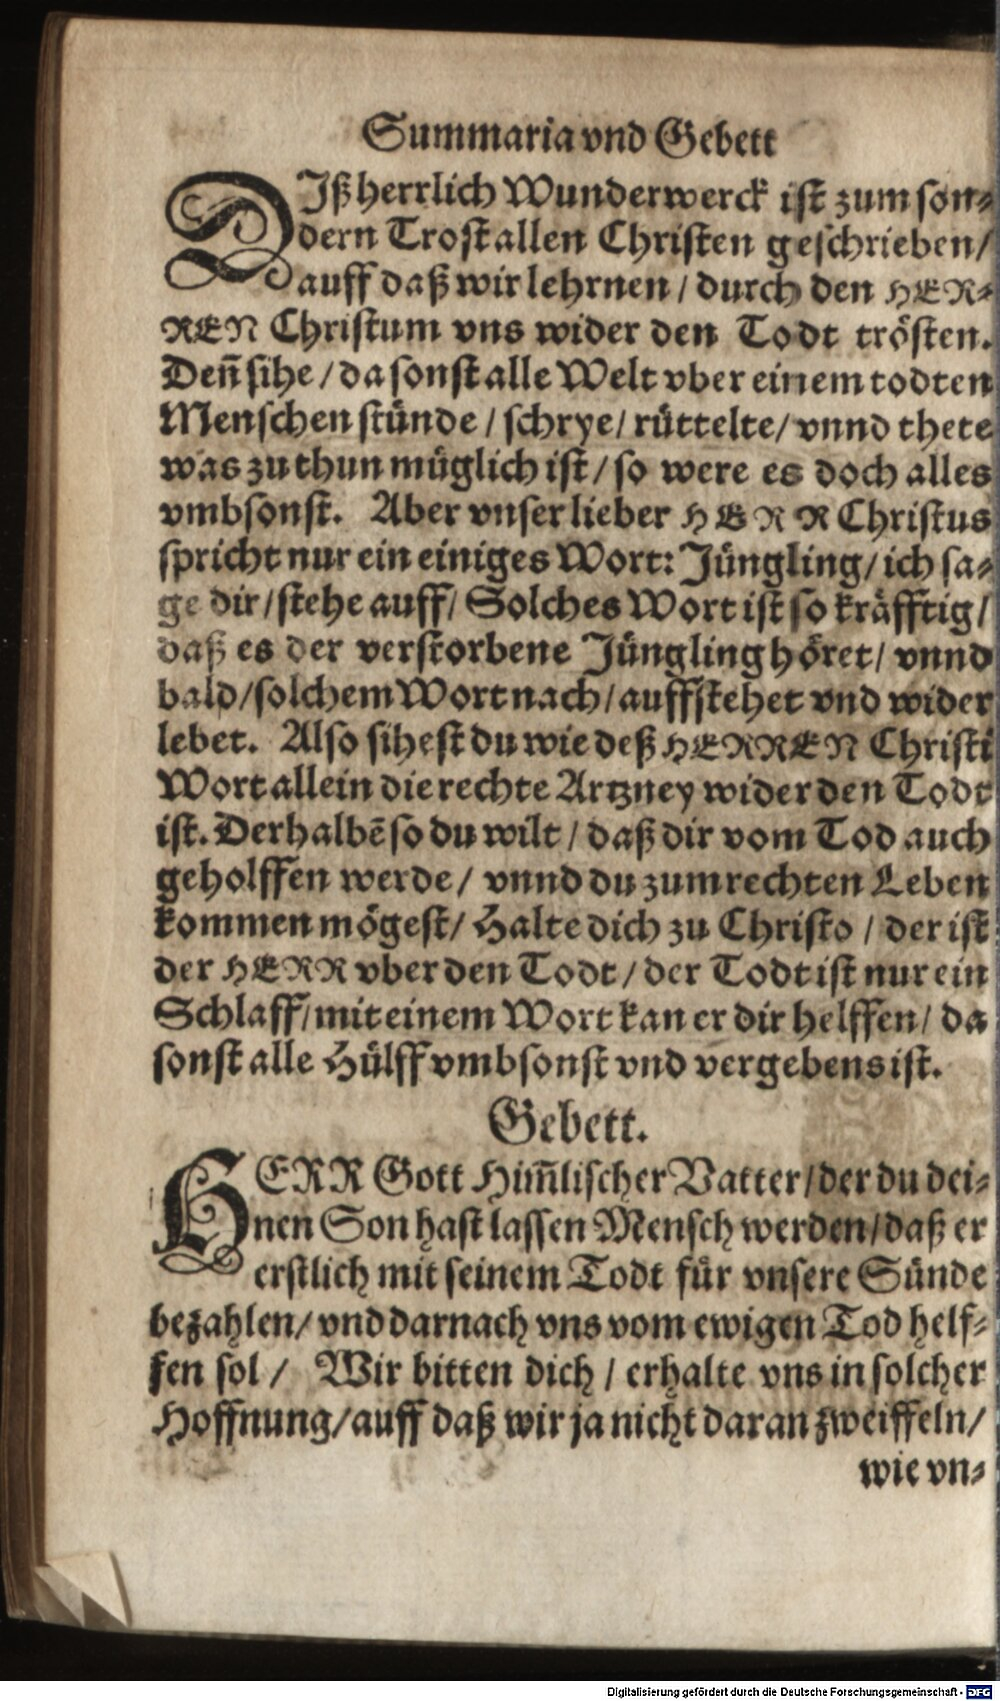 Summaria vnd Gebett
DIß herrlich Wunderwerck ist zum son-
dern Trost allen Christen geschrieben/
auff daß wir lehrnen / durch den HER-
REN Christum vns wider den Todt trösten.
Deñ sihe / da sonst alle Welt vber einem todten
Menschen stünde / schrye / rüttelte / vnnd thete
was zu thun müglich ist / so were es doch alles
vmbsonst. Aber vnser lieber HERR Christus
spricht nur ein einiges Wort: Jüngling / ich sa-
ge dir / stehe auff / Solches Wort ist so kräfftig /
daß es der verstorbene Jüngling höret / vnnd
bald / solchem Wort nach / auffstehet vnd wider
lebet. Also sihest du wie deß HERREN Christi
Wort allein die rechte Artzney wider den Todt
ist. Derhalbẽ so du wilt / daß dir vom Tod auch
geholffen werde / vnnd du zum rechten Leben
kommen mögest / Halte dich zu Christo / der ist
der HERR vber den Todt / der Todt ist nur ein
Schlaff / mit einem Wort kan er dir helffen / da
sonst alle Hülff vmbsonst vnd vergebens ist.
Gebett.
HERR Gott Him̃lischer Vatter / der du dei-
nen Son hast lassen Mensch werden / daß er
erstlich mit seinem Todt für vnsere Sünde
bezahlen / vnd darnach vns vom ewigen Tod helf-
fen sol / Wir bitten dich / erhalte vns in solcher
Hoffnung / auff daß wir ja nicht daran zweiffeln /
wie vn-
Digitalisierung gefördert durch die Deutsche Forschungsgemeinschaft - DFG